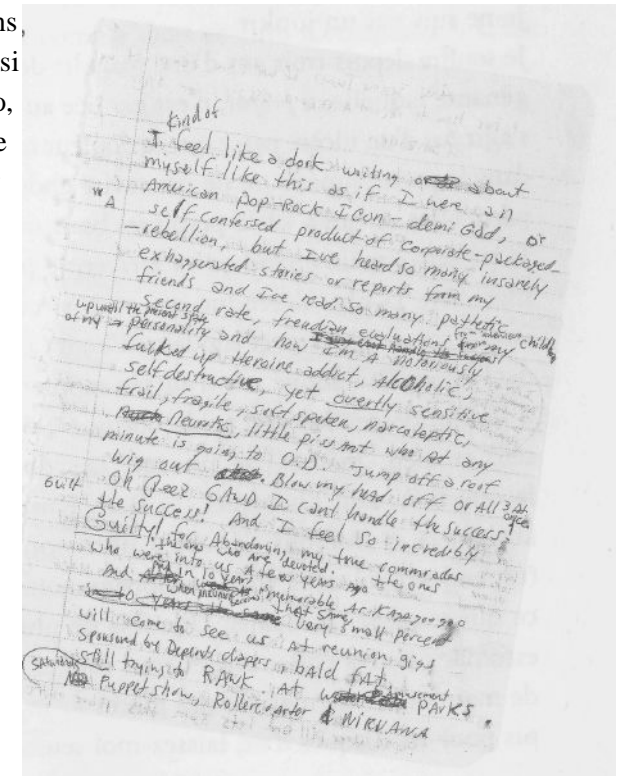 ns
si
o,
e
kind of
I feel like a dork writing about
myself like this as if I were an
American pop-Rock Icon - demi God, or
"A self confessed product of corporate-packaged-
- rebellion, but I've heard so many insanely
exhaggerated stories or reports from my
friends and I've read so many pathetic
Second rate, freudian evaluations from my childhood
up untill the present state
of my personality and how I'm A notoriously
fucked up Heroine addict, AlcOholic,
selfdestructive, yet overtly sensitive
frail, fragile, soft spoken, narcoleptic,
Neurotic, little piss Ant who At any
minute is going to O.D. Jump off a roof
wig out Blow my head off OR All 3 At once
Oh Geez GAWD I can't handle the success!
Guilt
the success! And I feel so incredibly
Guilty! for Abandoning my true commrades
the ones who are devoted. the ones
who were into us A few years ago
And in 10 years memorable As Kajagoogoo
that same very small percent
will come to see us At reunion gigs
sponsered by Depends diapers, bAld fAt
still trying to RAwk At Amusement PARKS.
Saturdays
Puppet show, Rollercoaster & NIRVANA